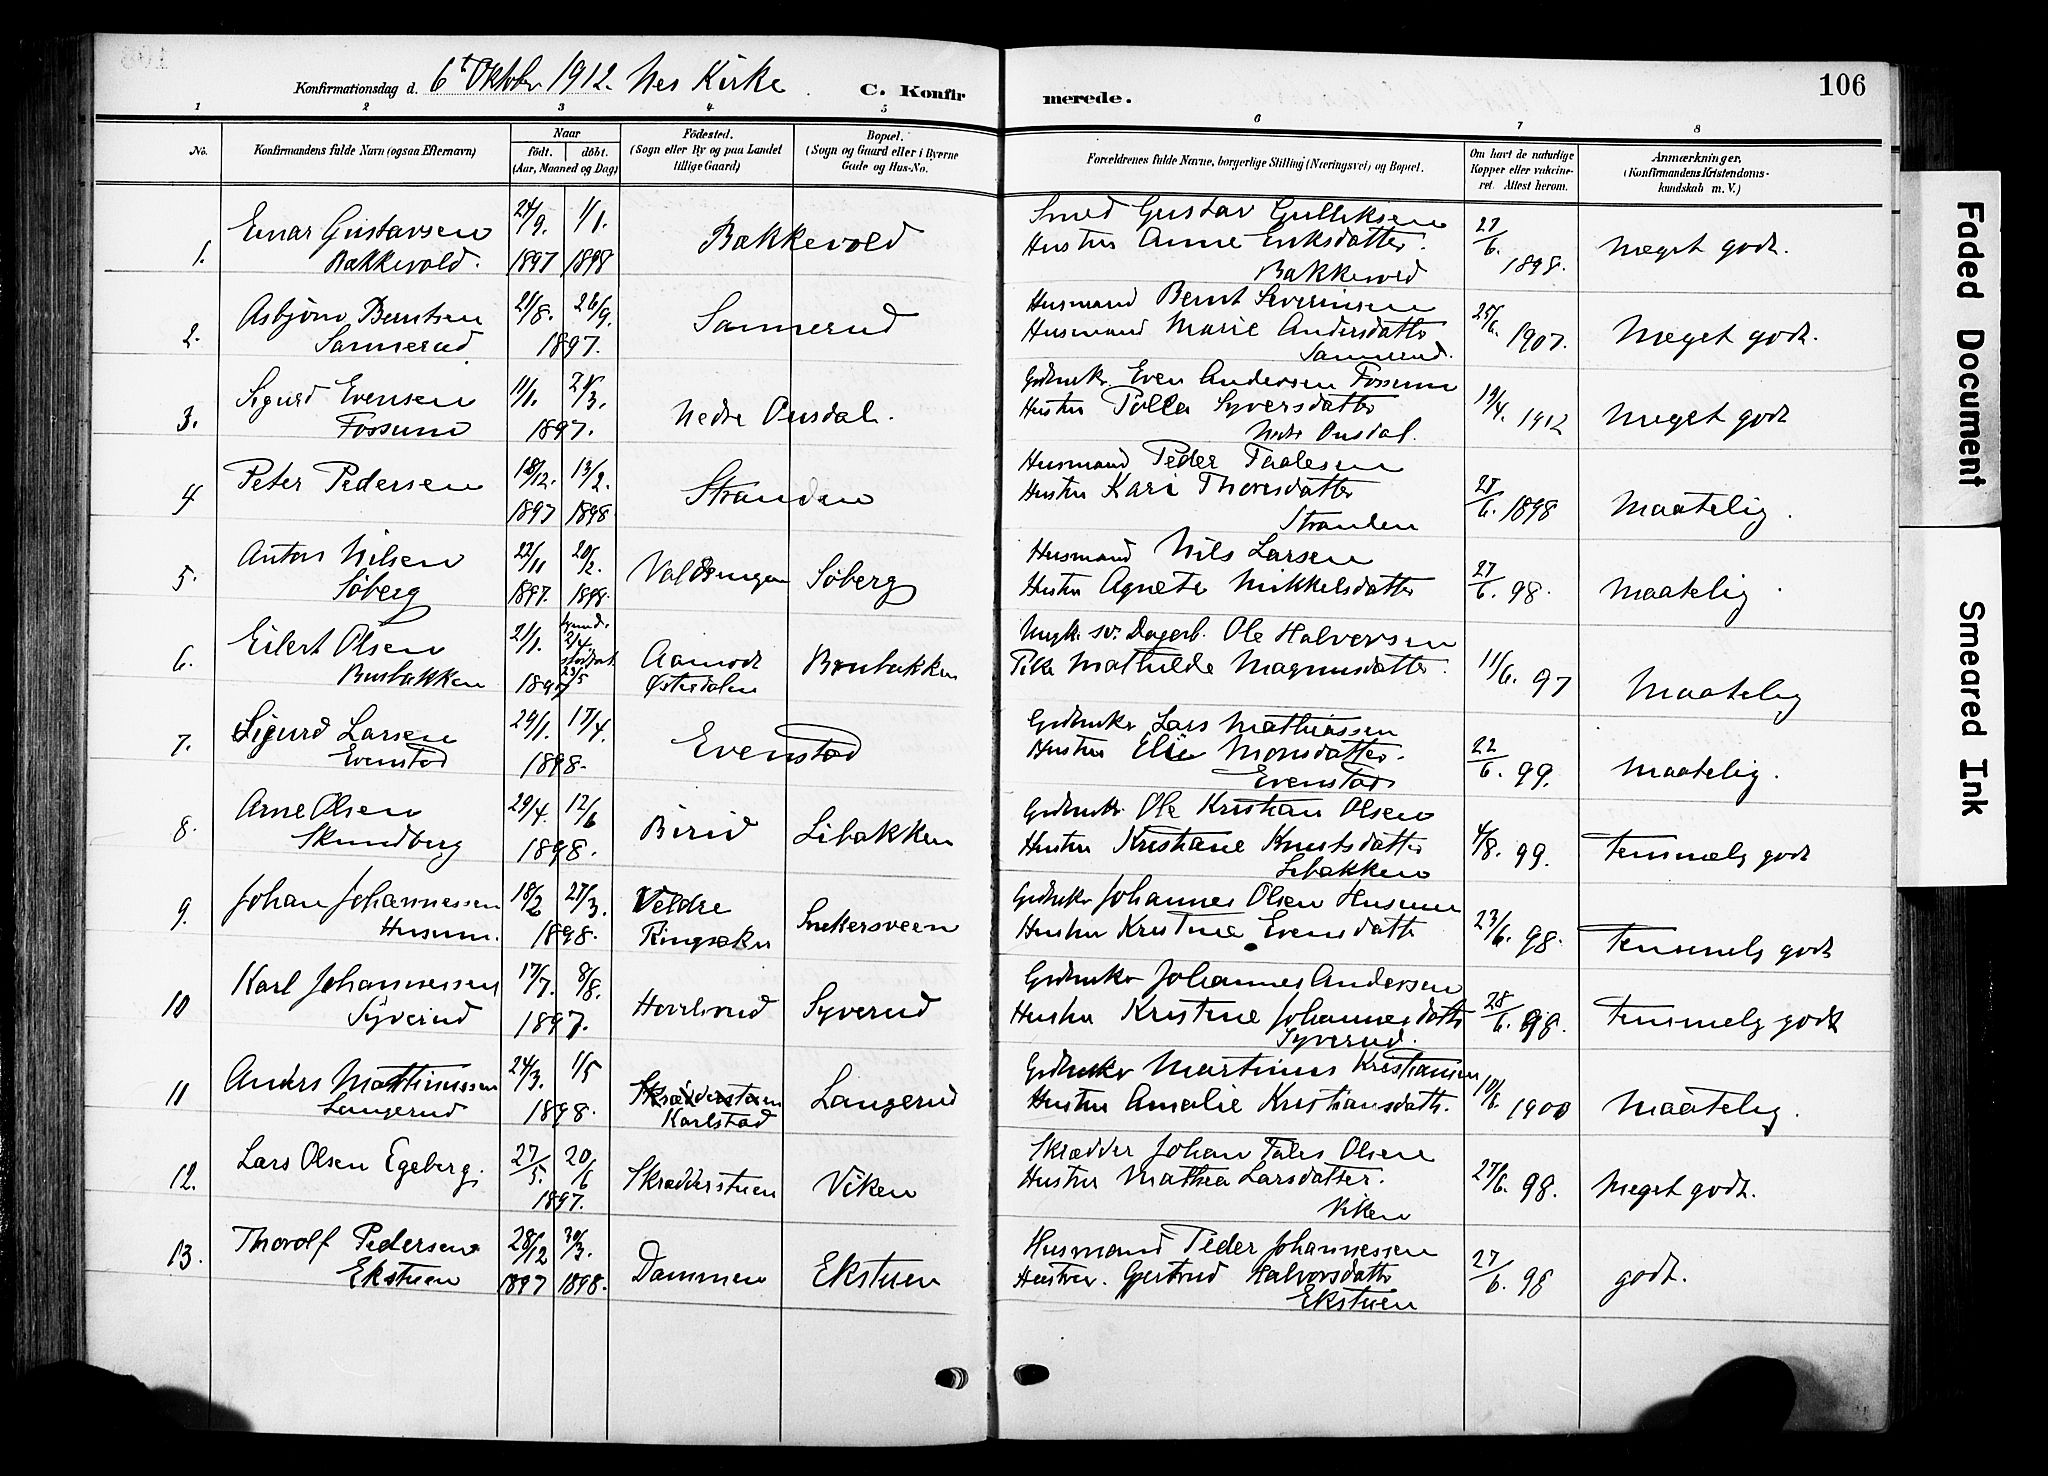 106
Konfirmationsdag d. 6t Oktober 1912. Nes Kirke. C. Konfirmerede.
1 2 3 4 5 6 7 8
No.
Konfirmandens fulde Navn (ogsaa Efternavn)
Naar
født. døbt.
(Aar, Maaned og Dag)
Fødested.
(Sogn eller By og paa Landet
tillige Gaard)
Bopæl.
(Sogn og Gaard eller i Byerne
Gade og Hus-No.
Forældrenes fulde Navne, borgerlige Stilling (Næringsvei) og Bopæl.
Om havt de naturlige
Kopper eller vakcine-
ret. Attest herom.
Anmærkninger,
(Konfirmandens Kristendoms-
kundskab m. V.)
1. Einar Gustavsen Bakkevold. 24/9. 1897 1/1. 1898 Bakkevold
Smed Gustav Gulliksen
Hustru Anne Eriksdatter.
Bakkevold
27/6. 1898. Meget godt.
2. Asbjørn Berntsen Sannerud. 21/8. 26/9. 1897. Sannerud
Husmand Bernt Severinsen
Husmand Marie Andersdatter
Sannerud.
25/6. 1907. Meget godt.
3. Sigurd Evensen Fossum 11/1. 21/3. 1897. Nedre Ousdal.
Gdbruker Even Andersen Fossum
Hustru Polla Syversdatter
Nedre Ousdal.
19/4. 1912 Meget godt
4 Peter Pedersen 18/12. 1897 13/2. 1898 Stranden
Husmand Peder Paalesen
Hustru Kari Thoresdatter
Stranden
27/6. 1898 Maatelig.
5. Anton Nilsen Søberg 22/11 1897. 20/2. 1898. Valdsengen Søberg
Husmand Nils Larsen
Hustru Agnete Mikkelsdatter
27/6. 98. Maatelig
6. Eilert Olsen Brubakken 21/1. 1897 2/4. 23/5 Aamodt Østerdalen Brubakken
Ungk. og Dagarb. Ole Halvorsen
Pike Mathilde Magnusdatter.
11/6. 97 Maatelig
7. Sigurd Larsen Evenstad 29/1. 17/4. 1898. Evenstad
Gdbruker Lars Mathiassen
Hustru Elie Monsdatter.
Evenstad
22/6. 99. Maatelig.
8. Arne Olsen Skundberg 29/4. 12/6 1898. Birid Libakken
Gdbruker Ole Kristian Olsen
Hustru Kristiane Knutsdatter
Libakken
4/8. 99. Temmelig godt
9. Johan Johannessen Husum. 18/2 27/3. 1898. Veldre Ringsaker Snekersveen
Gdbruker Johannes Olsen Husum
Hustru Kristine Evensdatter
23/6. 98. Temmelig godt
10 Karl Johannessen Syverud 17/7. 8/8. 1897. Hovelsrud Syverud
Gdbruker Johannes Andersen
Hustru Kristine Johannesdatter
Syverud.
28/6. 98. Temmelig godt
11 Anders Martinussen Langerud 24/3. 1/5 1898. Skrædderstuen Karlstad Langerud
Gdbruker Martinus Kristiansen
Hustru Amalie Kristiansdatter.
10/6. 1900 Maatelig.
12. Lars Olsen Egeberg. 27/5. 20/6 1897. Skrædderstuen Viken
Skrædder Johan Tales Olsen
Hustru Mathea Larsdatter.
Viken
27/6. 98. Meget godt.
13. Thorolf Pedersen Ekstuen 28/12 1897 30/3. 1898. Dammen Ekstuen
Husmand Peder Johannessen
Hustru. Gjertrud Halvorsdatter
Ekstuen
27/6. 98 godt.
Faded Document
Smeared Ink